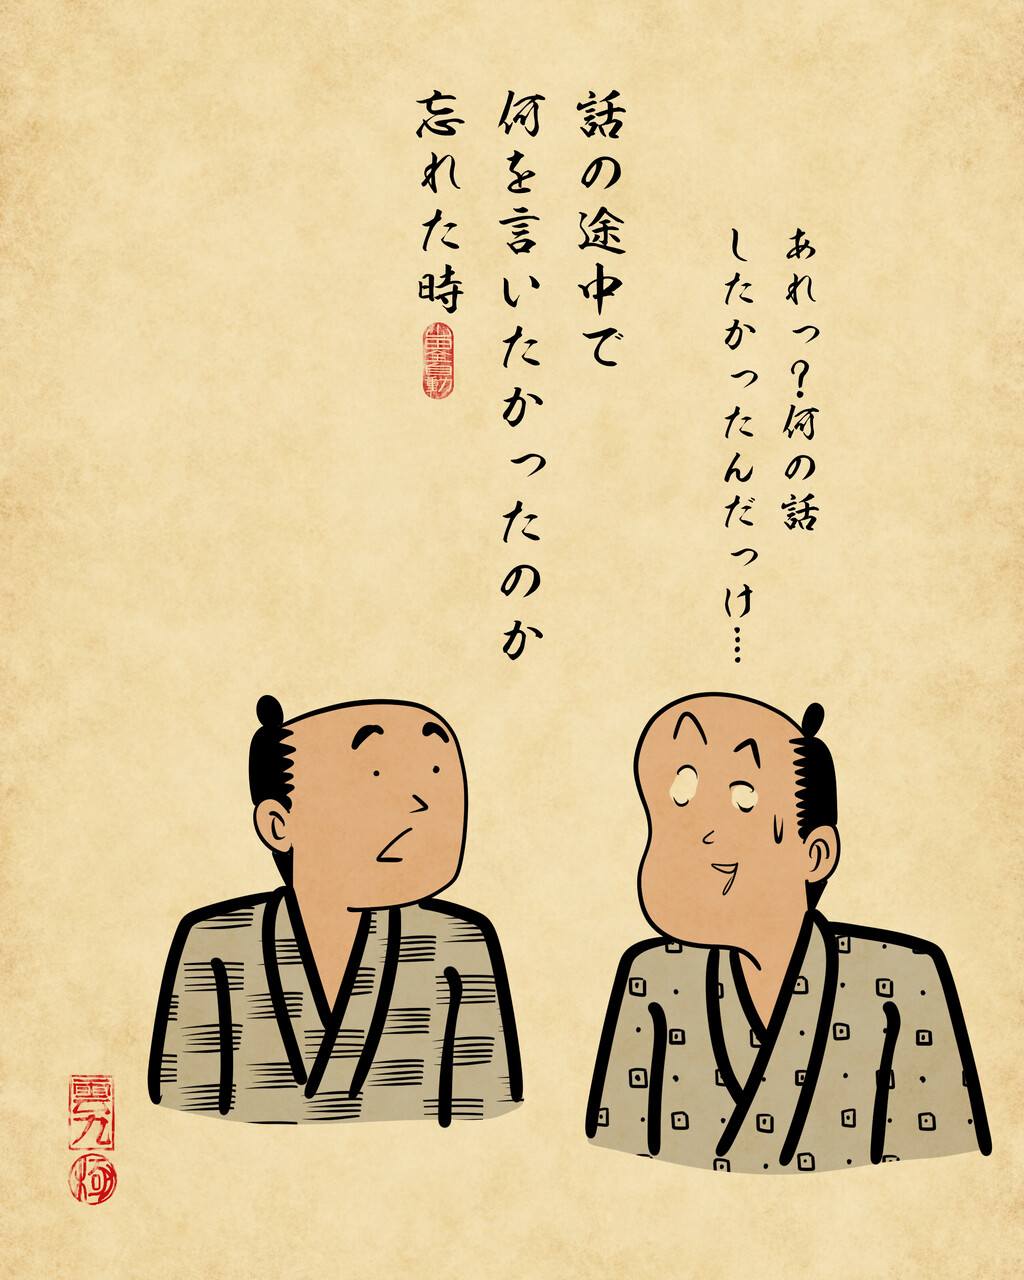 あれっ?何の話
したかったんだっけ…
話の途中で
何を言いたかったのか
忘れた時
雲九
極